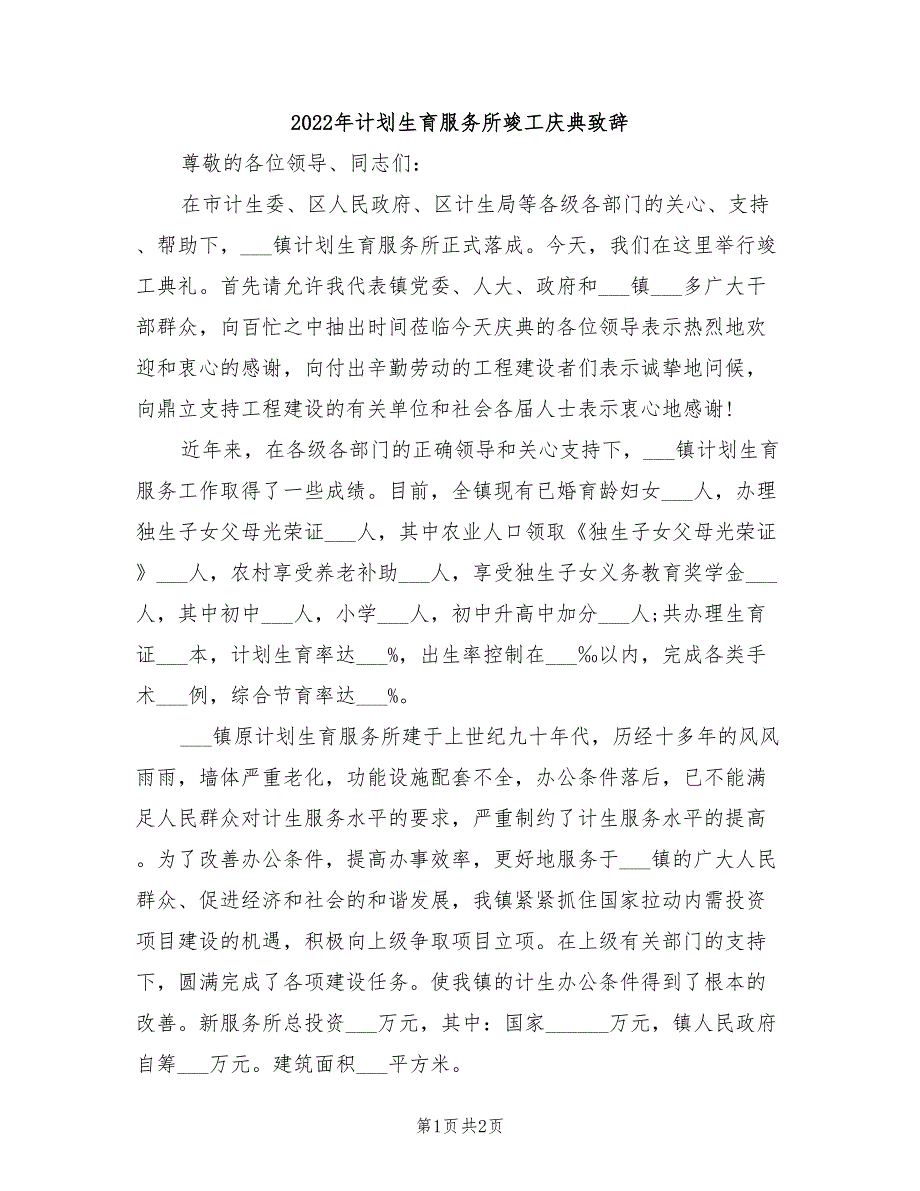 2022年计划生育服务所竣工庆典致辞
尊敬的各位领导、同志们：
在市计生委、区人民政府、区计生局等各级各部门的关心、支持
、帮助下，___镇计划生育服务所正式落成。今天，我们在这里举行竣
工典礼。首先请允许我代表镇党委、人大、政府和___镇___多广大干
部群众，向百忙之中抽出时间莅临今天庆典的各位领导表示热烈地欢
迎和衷心的感谢，向付出辛勤劳动的工程建设者们表示诚挚地问候，
向鼎立支持工程建设的有关单位和社会各届人士表示衷心地感谢!
近年来，在各级各部门的正确领导和关心支持下，___镇计划生育
服务工作取得了一些成绩。目前，全镇现有已婚育龄妇女___人，办理
独生子女父母光荣证___人，其中农业人口领取《独生子女父母光荣证
》___人，农村享受养老补助___人，享受独生子女义务教育奖学金___
人，其中初中___人，小学___人，初中升高中加分___人;共办理生育
证___本，计划生育率达___%，出生率控制在___‰以内，完成各类手
术___例，综合节育率达___%。
___镇原计划生育服务所建于上世纪九十年代，历经十多年的风风
雨雨，墙体严重老化，功能设施配套不全，办公条件落后，已不能满
足人民群众对计生服务水平的要求，严重制约了计生服务水平的提高
。为了改善办公条件，提高办事效率，更好地服务于___镇的广大人民
群众、促进经济和社会的和谐发展，我镇紧紧抓住国家拉动内需投资
项目建设的机遇，积极向上级争取项目立项。在上级有关部门的支持
下，圆满完成了各项建设任务。使我镇的计生办公条件得到了根本的
改善。新服务所总投资___万元，其中：国家______万元，镇人民政府
自筹___万元。建筑面积___平方米。
第1页共2页